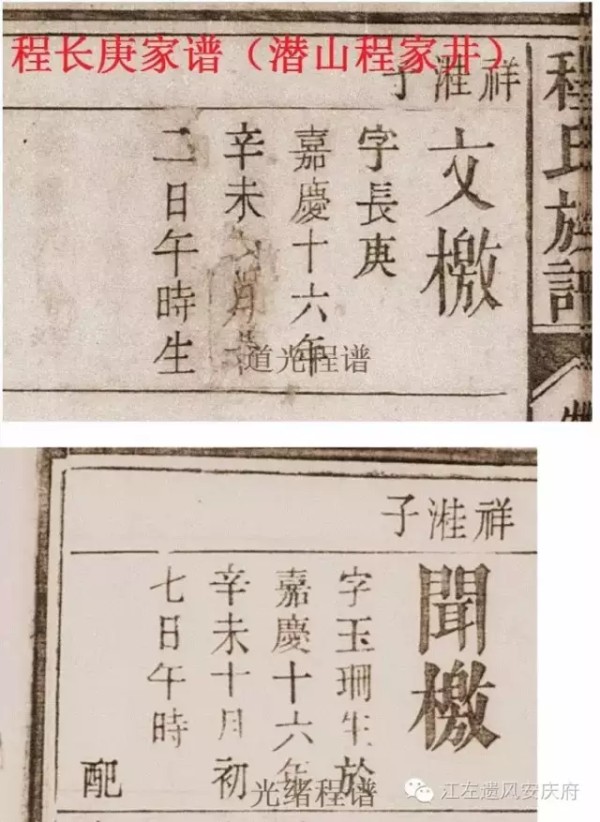 程长庚家谱（潜山程家井）
程氏族
祥溎子
文檄
字長庚
嘉慶十六年
辛未 月
二日午時生
道光程谱
祥溎子
聞檄
字玉珊生於
嘉慶十六年
辛未十月初
七日午時
配
光绪程谱
江左遗风安庆府